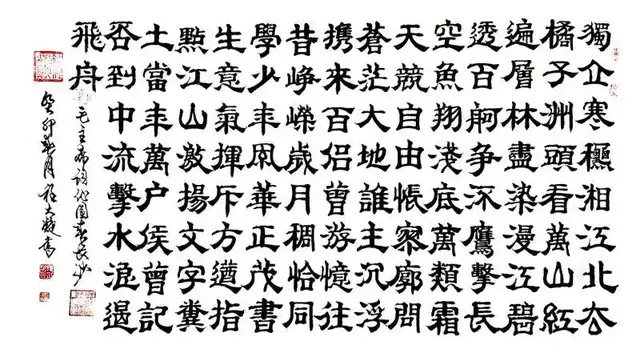 獨立寒穐湘江北去
橘子洲頭看萬山紅
遍層林盡染漫江碧
透百舸争流鷹擊長
空魚翔淺底萬類霜
天競自由悵寥廓問
蒼茫大地誰主沉浮
携來百侣曾游憶往
昔崢嶸歲月稠恰同
學少年風華正茂書
生意氣揮斥方遒指
點江山激揚文字糞
土當年萬户侯曾記
否到中流擊水浪遏
飛舟
毛主席詞沁園春長沙
癸卯春月程大書